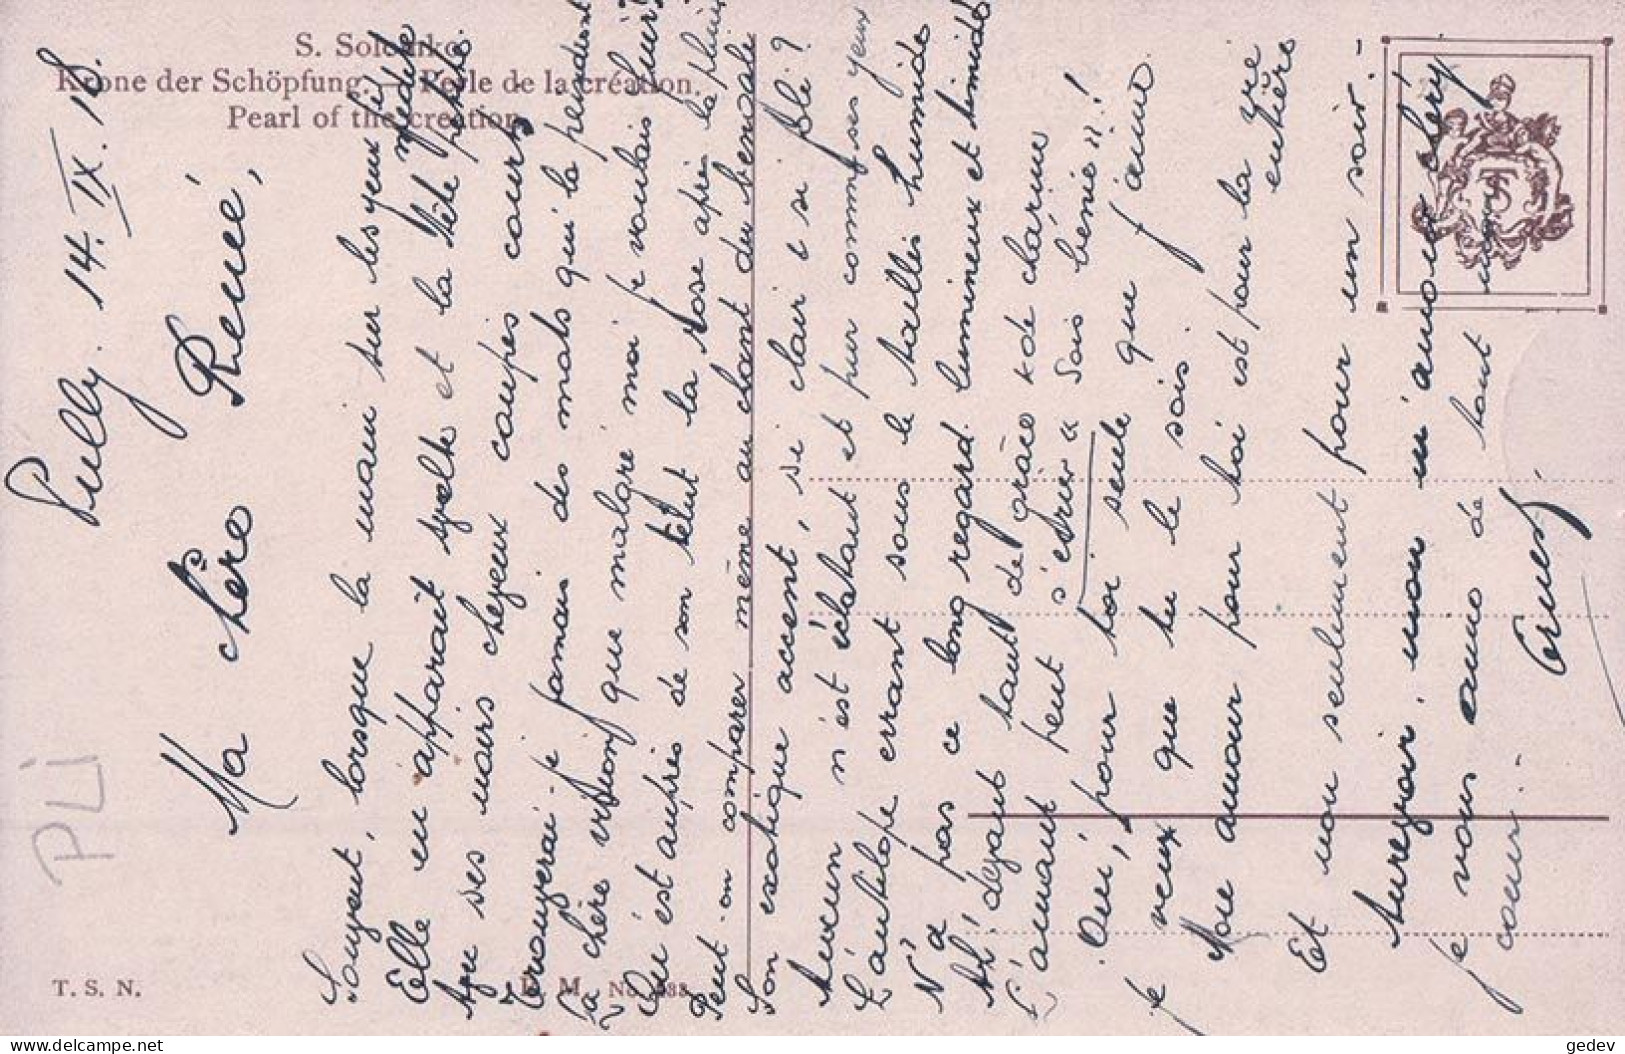 S. Solomko
Krone der Schöpfung. — Perle de la création.
Pearl of the creation.
Pully. 14. IX. 18.
Ma chère Renée,
Souvent, lorsque la main sur les yeux je médite
Elle m'apparaît svelte et la tête petite.
Avec ses noirs cheveux coupés courts
Trouverai-je jamais des mots qui la peindraient
La chère vision que malgré moi je voulais
Qu'est auprès de son teint la rose après la pluie
Peut-on comparer même au chant du bengali
Son exotique accent, si clair et si joli ?
Aucun n'est éclatant et pur comme ses yeux
L'antilope errant sous le taillis humide
N'a pas ce long regard lumineux et timide
Ah! devant tant de grâce et de charme
L'amant peut s'écrier "Sois bénie"!
Oui, pour toi seule que j'aime
Je veux que tu le sois.
Mon amour pour toi est pour la vie
entière
Et non seulement pour un soir. -
Aurevoir, mon m'amour chéry
Je vous aime de tout mon
coeur. -
PLI
T. S. N.
R. M. No
gedev